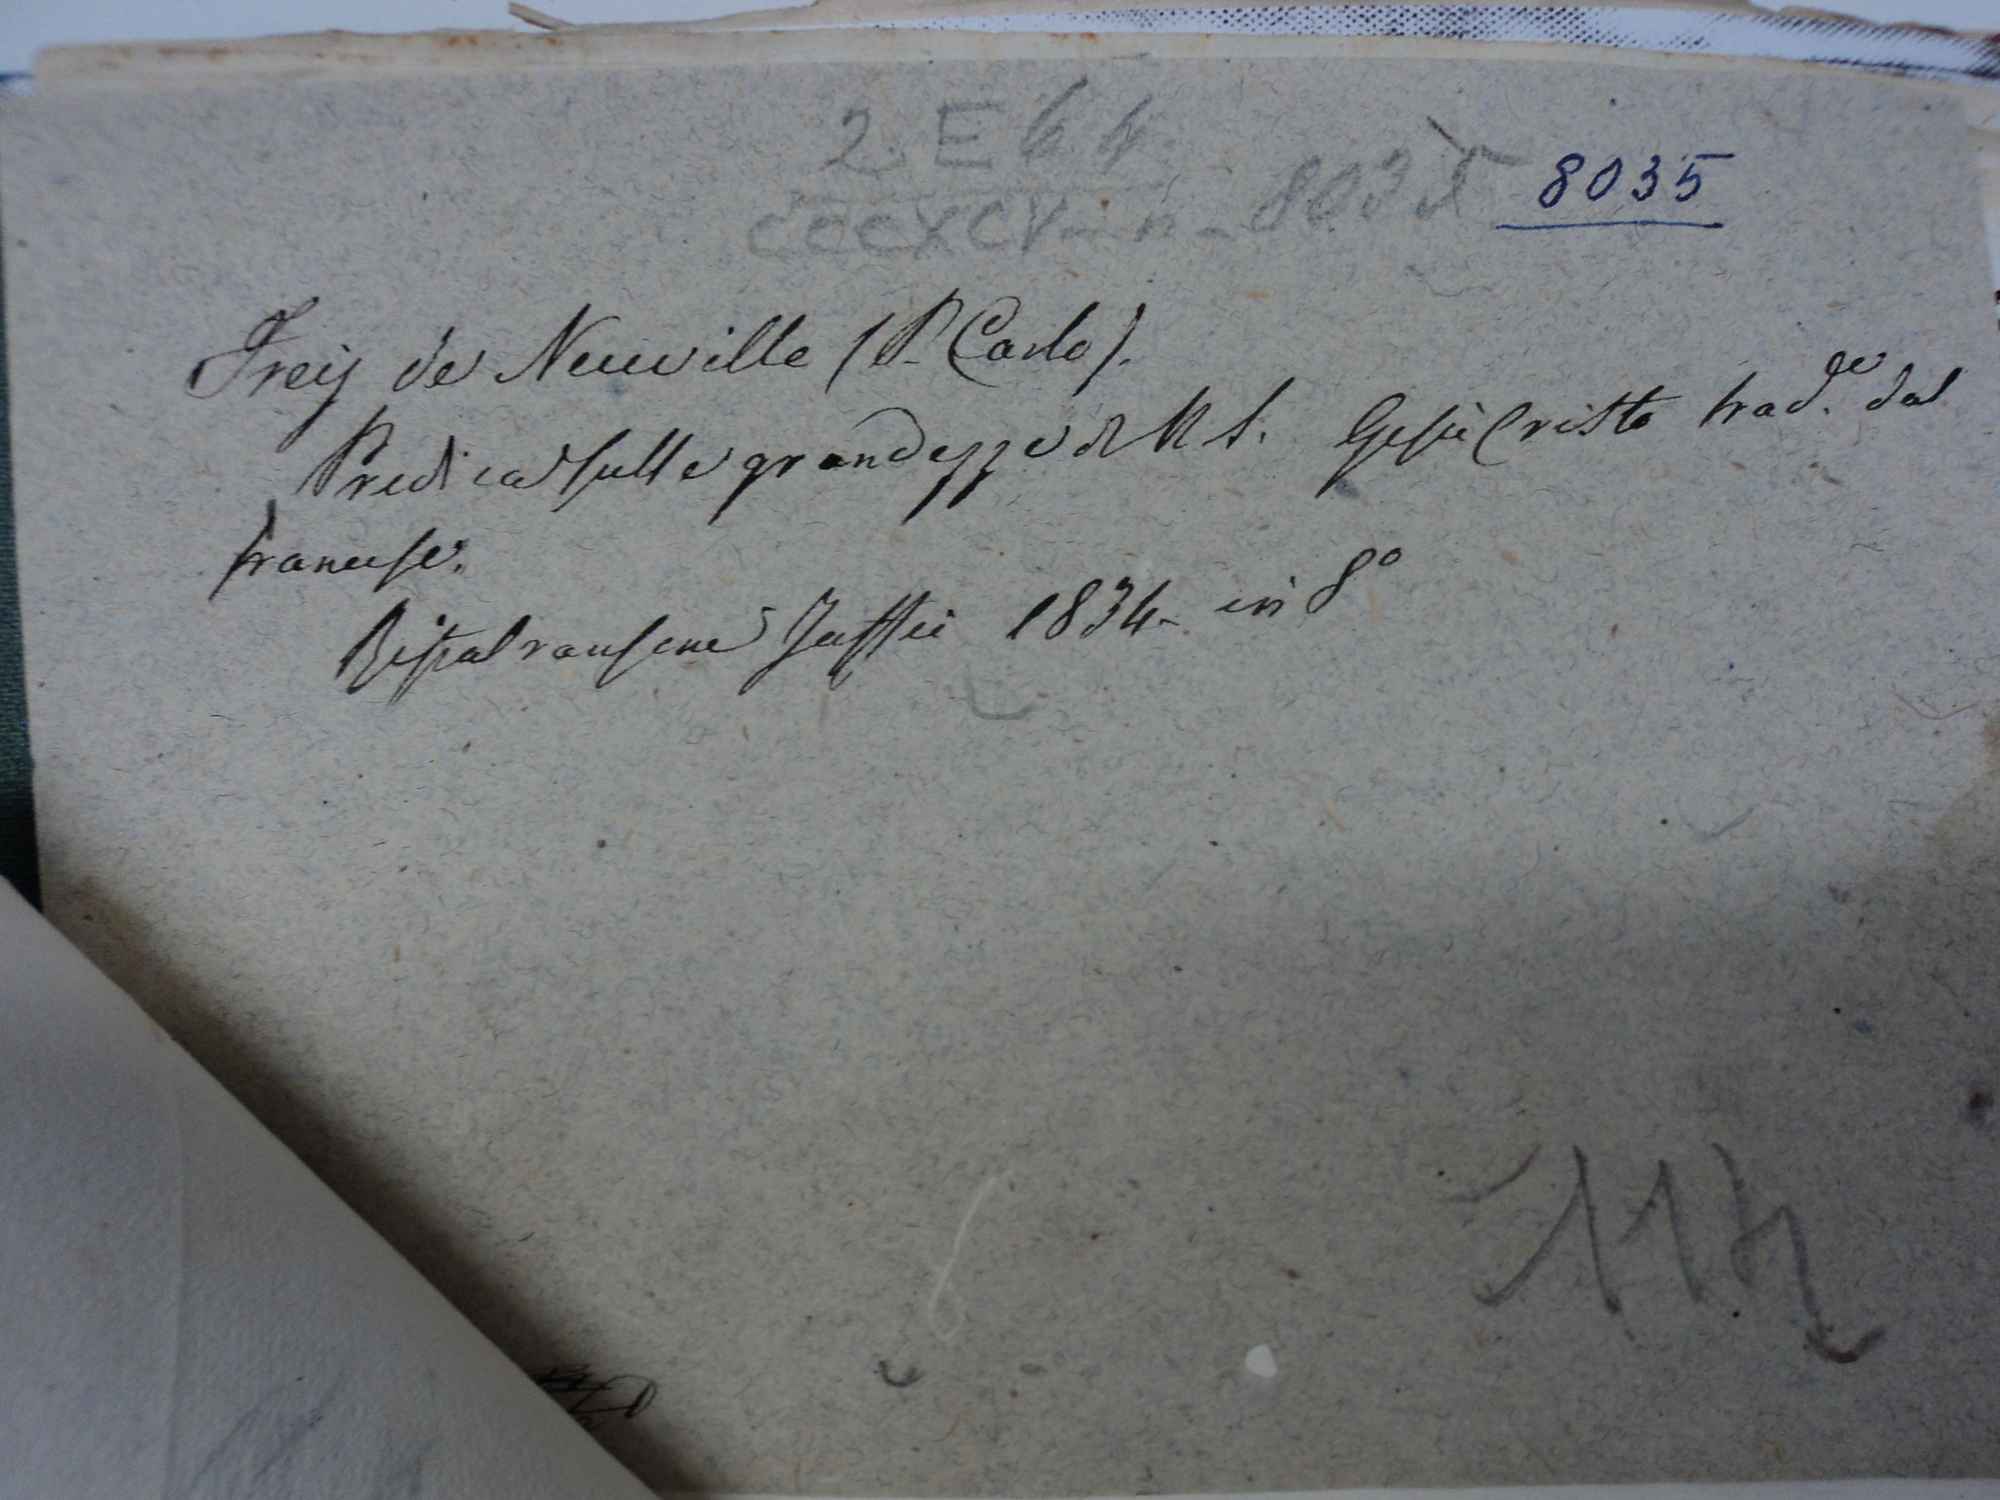 2 E 64
CCCXCV - n - 8035
8035
Frey de Neuville (P. Carlo).
Predica sulle grandezze di N. S. Gesù Cristo trad.e dal
francese.
Ripatransone Jaffei 1834 - in 8°